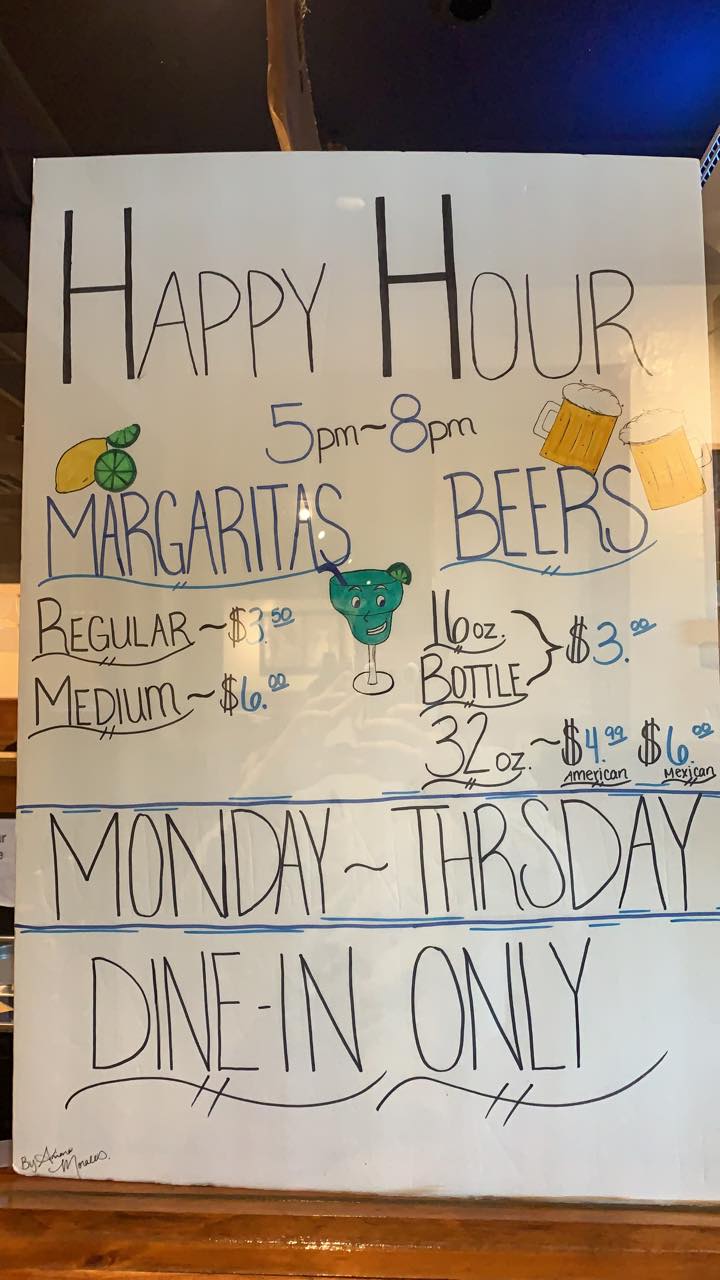 HAPPY HOUR
5pm~8pm
MARGARITAS
REGULAR ~ $3.50
MEDIUM ~ $6.00
BEERS
16 oz.
BOTTLE } $3.00
32 oz. ~ $4.99 $6.00
American Mexican
MONDAY ~ THRSDAY
DINE-IN ONLY
By
Morales.